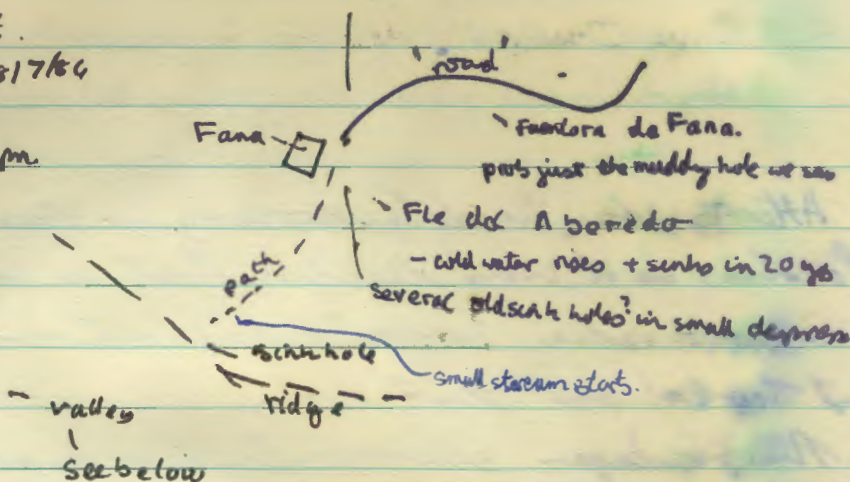 8/7/84
pm.
'road'
Fana
Fundora da Fana.
prob just the muddy hole we saw
Fte del Aboredo
- cold water rises + sinks in 20 yds
several old sink holes? in small depress
path
sink hole
small stream starts.
ridge
valley
See below